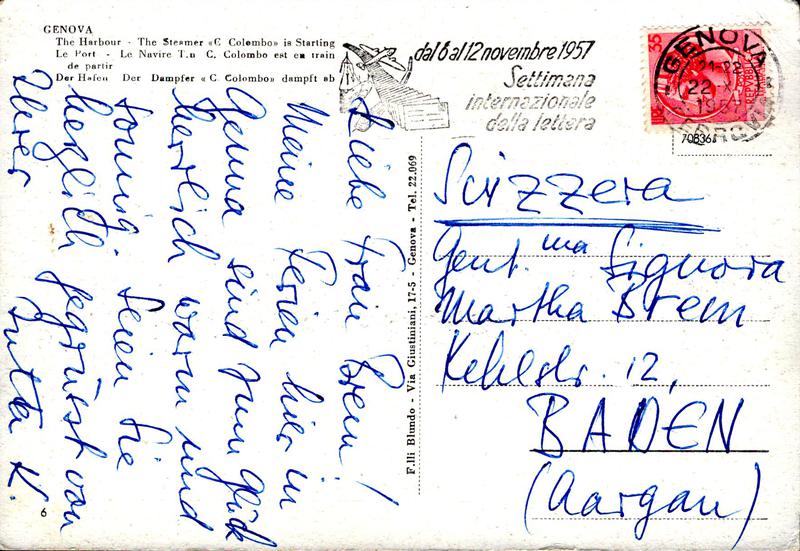 GENOVA
The Harbour - The Steamer «C Colombo» is Starting
Le Port - Le Navire T.n C. Colombo est en train
de partir
Der Hafen Der Dampfer «C Colombo» dampft ab
dal 6 al 12 novembre 1957
Settimana
internazionale
della lettera
35
GENOVA
21-22
22
195
FERROVIA
70836
Liebe Frau Brem!
Meine Ferien hier in
Genua sind zum Glück
herrlich warm und
sonnig. Seien Sie
herzlich gegrüsst von
Ihrer Juta K.
F.lli Blundo - Via Giustiniani, 17-5 - Genova - Tel. 22.069
Svizzera
Gent.ma Signora
Martha Brem
Kehlstr. 12,
BADEN
(Aargau)
6